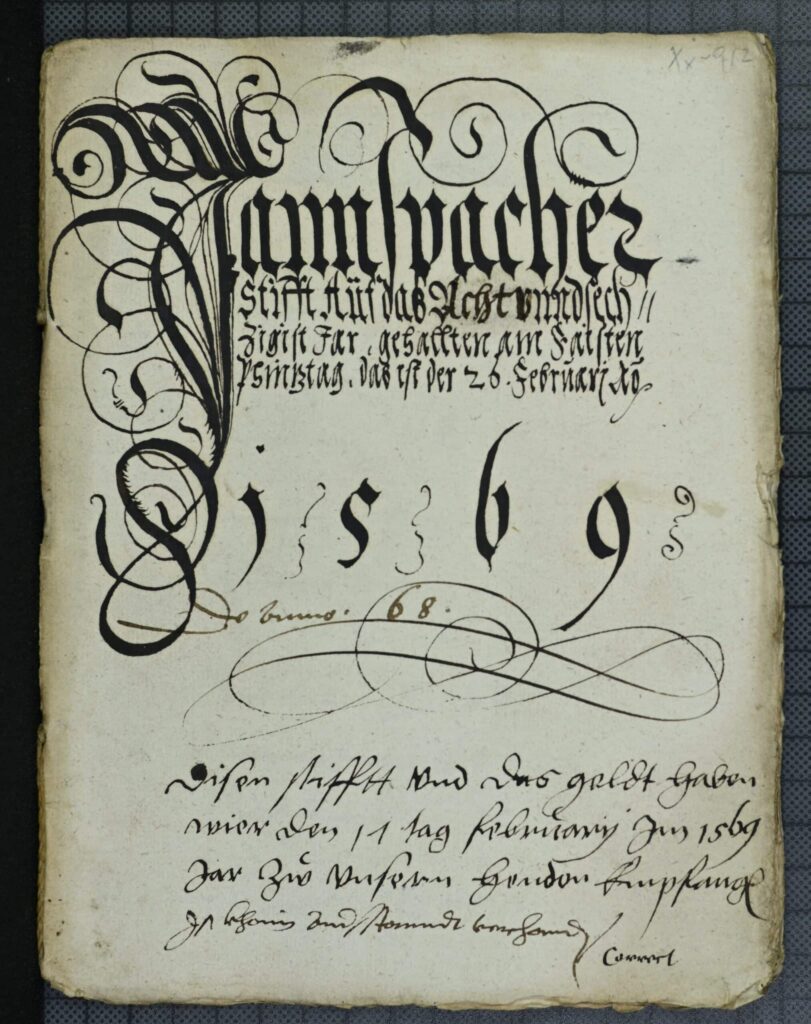 XX-912
Stifft Auf das Acht vnndsech //
Zigist Jar, gehallten am Faisten
Pfintztag, das ist der 26. Februarj Ao
1569
De Anno. 68.
Disen stifftt vnd das geldt haben
wier den 11 tag february Im 1569
Jar Zw vnsern henden Empfang
Ist khain ausstanndt
Correct